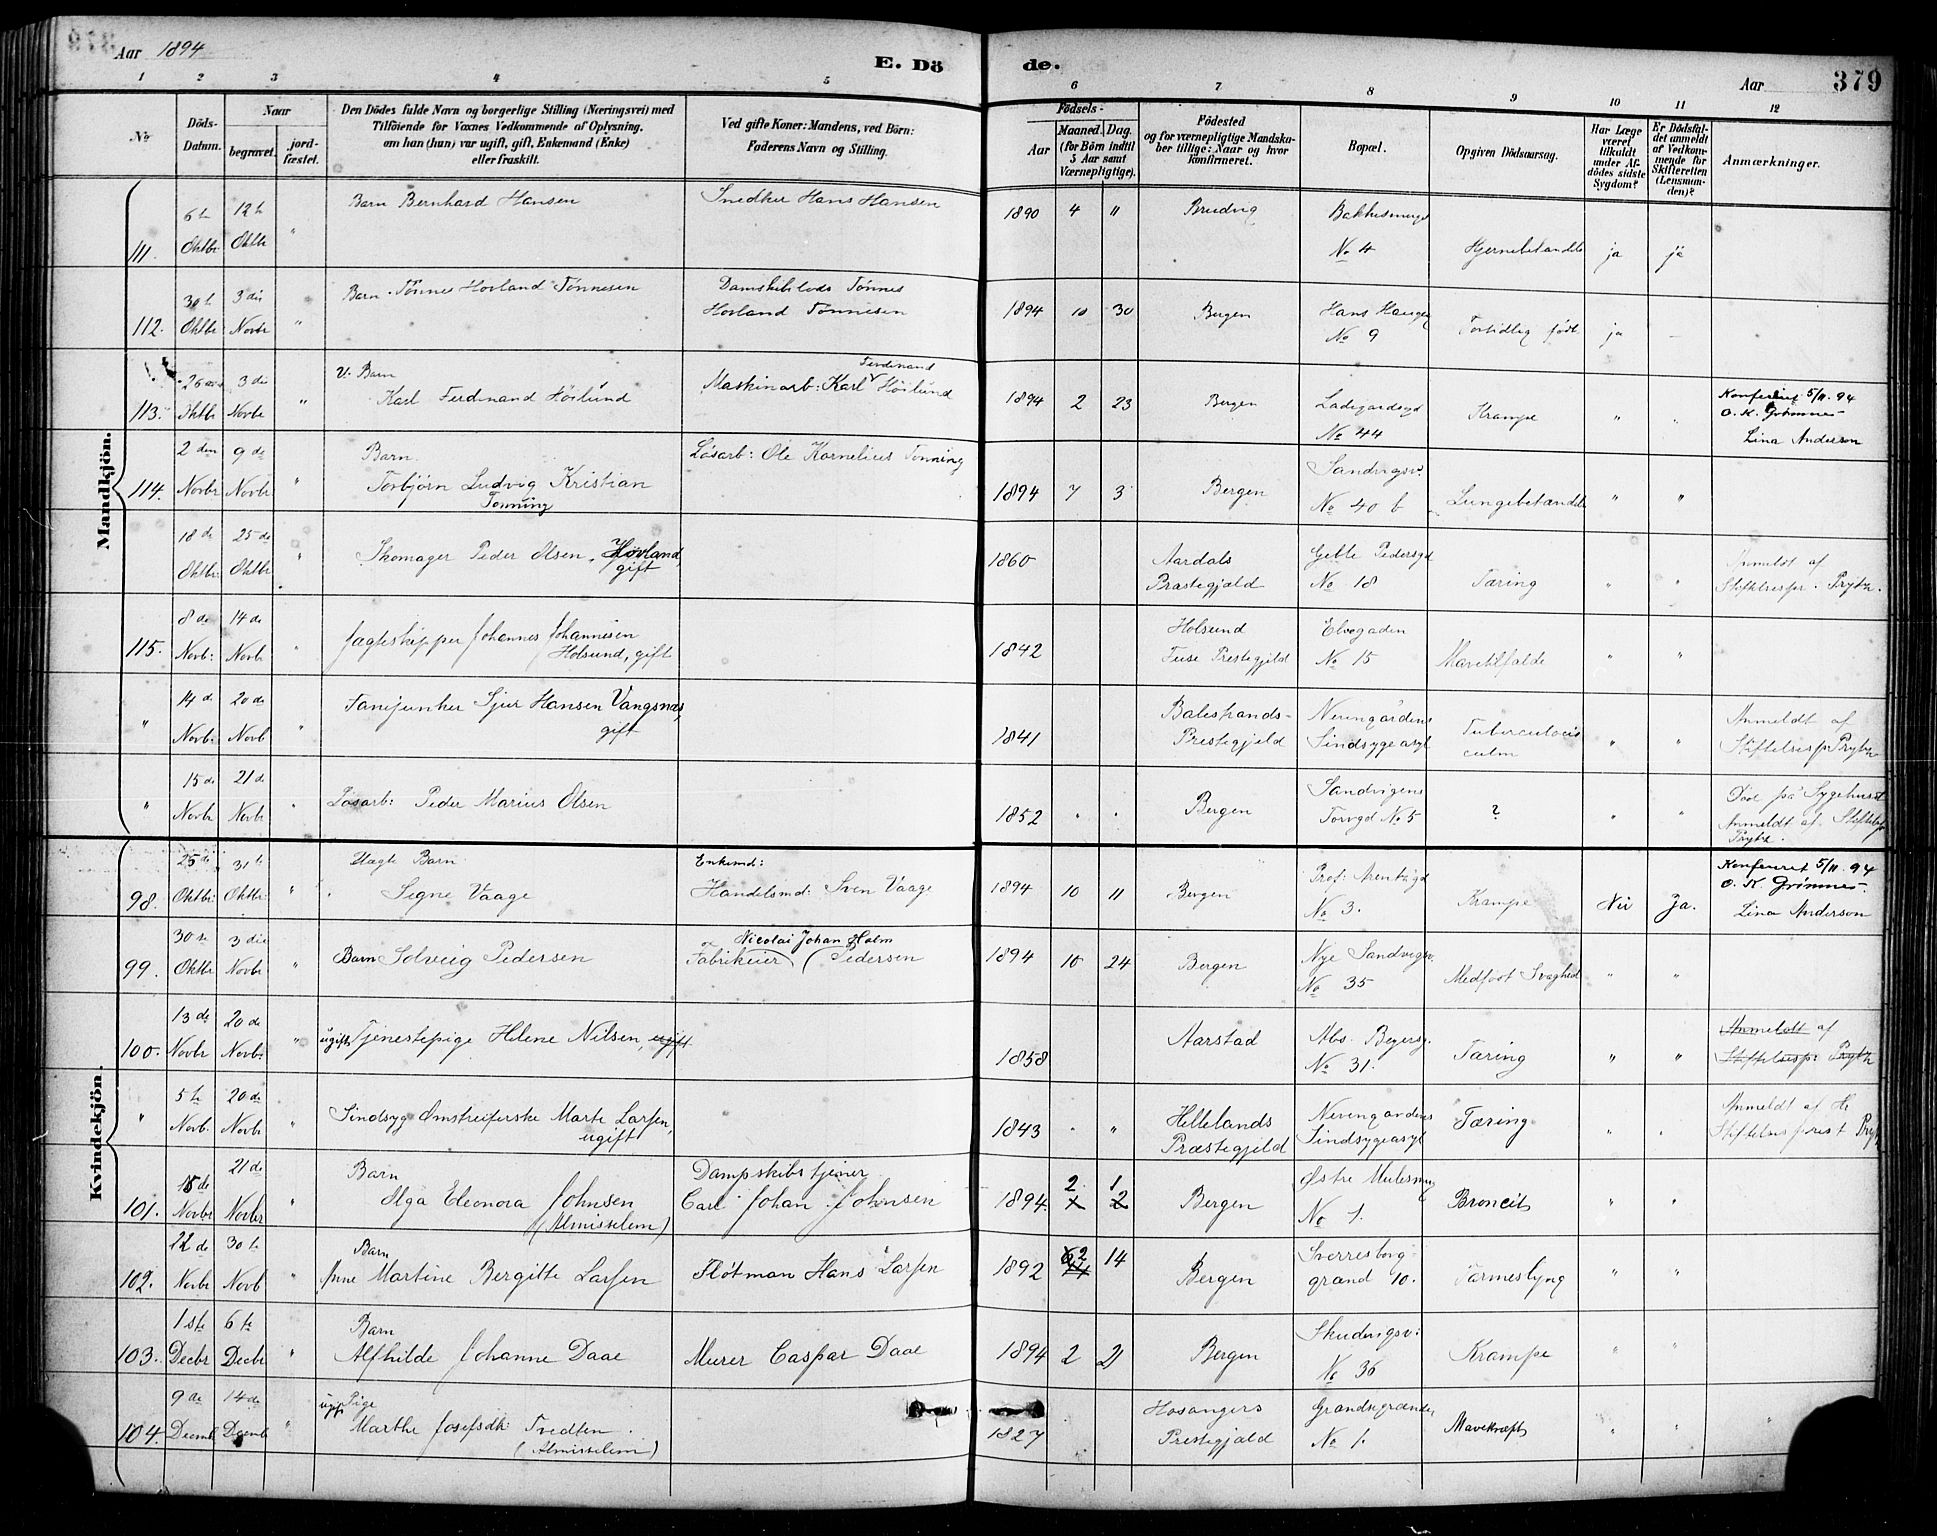 Aar 1894
E. Dö
de.
Aar
379
1 2 3 4 5 6 7 8 9 10 11 12
No
Döds-
Datum.
Naar
begravet.
jord-
fæstet.
Den Dödes fulde Navn og borgerlige Stilling (Næringsvei) med
Tilföiende for Voxnes Vedkommende af Oplysning,
om han (hun) var ugift, gift, Enkemand (Enke)
eller fraskilt.
Ved gifte Koner: Mandens, ved Börn:
Faderens Navn og Stilling.
Födsels-
Aar
Maaned. Dag.
(for Börn indtil
5 Aar samt
Værnepligtige).
Födested
og for værnepligtige Mandska-
ber tillige: Naar og hvor
konfirmeret.
Bopæl.
Opgiven Dödsaarsag.
Har Læge
været
tilkaldt
under Af-
dödes sidste
Sygdom?
Er Dödsfal-
det anmeldt
af Vedkom-
mende for
Skifteretten
(Lensman-
den)?
Anmærkninger.
Mandkjön.
6te 12te Barn Bernhard Hansen Snedker Hans Hansen 1890 4 " Brudvig
111. Oktbr Oktbr " No 4 Hjernebetændelse ja ja
30te 3die Barn Tönnes Hovland Tönnesen Damskibslods Tönnes
112. Oktbr Novbr " Hovland Tönnesen 1894 10 30 Bergen Hans Haugeg No 9 Fortidlig födt ja –
26 3die U. Barn Ferdinand
113. Oktbr Novbr " Karl Ferdinand Höilund Maskinarb: Karl Höilund 1894 2 23 Bergen Ladegardsgd No 44 Krampe " " Konfereret 5/11.94
O. K. Grömnes
Lina Anderson
2den 9de Barn Løsarb: Ole Kornelius Tonning
114. Novbr Novbr " Torbjörn Ludvig Kristian
Tonning 1894 7 3 Bergen Sandvigsv. No 40 b Lungebetændelse " "
18de 25de
Oktbr: Oktbr " Skomager Peder Olsen Hovland,
gift 1860 Aardals
Præstegjæld Geble Pedersgd No 18 Tæring " " Anmeldt af
Stiftelsespr. Prytz.
8de 14de
115. Novb: Novb " Jagteskipper Johannes Johannesen
Holsund, gift 1842 Holsund
Fuse Prestegjeld Elvegaden
No 15 " "
14de 20de
" Novbr Novb " Fanejunker Sjur Hansen Vangsnæs,
gift 1841 Balestrands-
Prestegjeld Nevengårdens
Sindsygeasyl " " Anmeldt af
Stiftelsespr Prytz
15de 21de
" Novbr Novbr " Løsarb: Peder Marius Olsen 1852 " " Bergen Sandvigens
Torvgd No 5 ? " " Död på Sygehuset
Anmeldt af Stiftelsespr
Prytz.
Kvindekjön.
25de 31te Uægte Barn Enkemd:
98. Oktbr: Oktbr: " Signe Vaage Handelsmd: Sven Vaage 1894 10 11 Bergen Prof: Arentzgd
No 3. Krampe Nei Ja. Konfereret 5/11.94
O. K. Grömnes
Lina Anderson
30te 3die Nicolai Johan Holm
99. Oktbr Novbr " Barn Solveig Pedersen Fabrikeier Pedersen 1894 10 24 Bergen Nye Sandvigsv.
No 35 Medfödt Svaghed " "
13de 20de
100. Novbr Novbr " ugift Tjenestepige Helene Nilsen, ugift 1858 Aarstad Abs. Beyersg.
No 31. Tæring " " Anmeldt af
Stiftelsespr: Prytz
5te 20de
" Novb. Novb " Sindssyg Omstreiferske Marte Larsen,
ugift 1843 " " Hellelands
Præstegjeld Nevengardens
Sindsygeasyl Tæring " " Anmeldt af Hr
Stiftelsesprest Prytz
15de 21de Barn Dampskibstjener
101. Novbr Novbr " Olga Eleonora Johnsen
(Almisselem) Carl Johan Johnsen 1894. 2 1 Bergen Østre Mulesmug
No 1. Broncit " "
22de 30te Barn
102. Novbr Novb " Anne Martine Bergitte Larsen Flötman Hans Larsen 1892 2 14 Bergen Sverresborg-
grænd 10. Tarmeslyng " "
1ste 6te Barn
103. Decbr Decbr " Alfhilde Johanne Daae Murer Caspar Daae 1894 2 21 Bergen Skudevigsv:
No 36 Krampe " "
9de 14de Pige
104. Decmb Decmb " Marthe Josefsdt: Tvedten
(Almisselem) 1827 Hosangers
Prestegjæld
No 1. Mavekræft " "